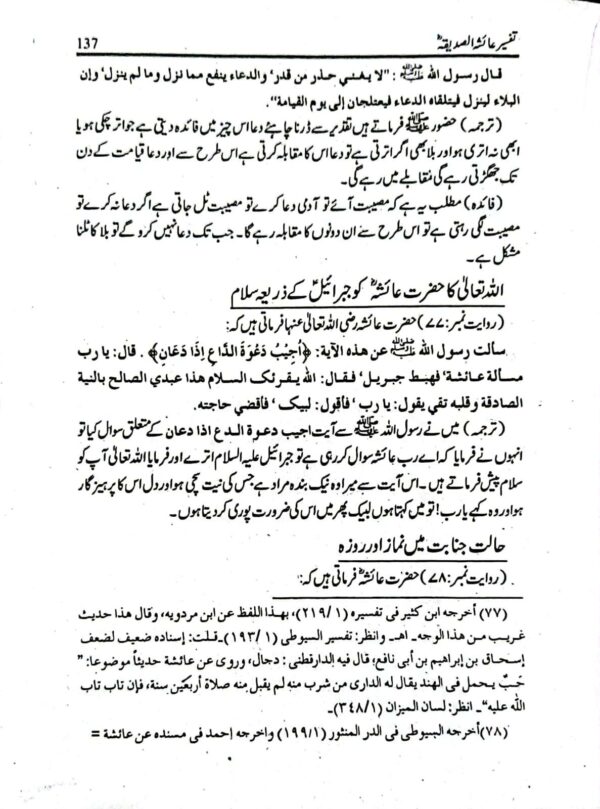 تفسیر عائشۃ الصدیقہؓ 137
قال رسول اللہ ﷺ : "لا یغنی حذر من قدر' والدعاء ینفع مما نزل وما لم ینزل' وإن
البلاء لینزل فیتلقاہ الدعاء فیعتلجان إلی یوم القیامة".
(ترجمہ) حضور ﷺ فرماتے ہیں تقدیر سے ڈرنا چاہئے دعا اس چیز میں فائدہ دیتی ہے جو اتر چکی ہو یا
ابھی نہ اتری ہو اور بلا بھی اگر اترتی ہے تو دعا اس کا مقابلہ کرتی ہے اس طرح سے اور دعا قیامت کے دن
تک جھگڑتی رہے گی مقابلے میں رہے گی۔
(فائدہ) مطلب یہ ہے کہ مصیبت آئے تو آدمی دعا کرے تو مصیبت ٹل جاتی ہے اگر دعا نہ کرے تو
مصیبت لگی رہتی ہے تو اس طرح سے ان دونوں کا مقابلہ رہے گا۔ جب تک دعا نہیں کرو گے تو بلا کا ٹلنا
مشکل ہے۔
اللہ تعالیٰ کا حضرت عائشہؓ کو جبرائیلؑ کے ذریعہ سلام
(روایت نمبر: ۷۷) حضرت عائشہ رضی اللہ تعالیٰ عنہا فرماتی ہیں کہ:
سألت رسول اللہ ﷺ عن هذه الآية: ﴿أُجِيْبُ دَعْوَةَ الدَّاعِ إِذَا دَعَانِ﴾ . قال: یا رب
مسألة عائشة' فهبط جبریل' فقال: اللہ یقرئک السلام هذا عبدی الصالح بالنیة
الصادقة وقلبه تقی یقول: یا رب' فأقول: لبیک' فأقضی حاجته.
(ترجمہ) میں نے رسول اللہ ﷺ سے آیت اجیب دعوۃ الدع اذا دعان کے متعلق سوال کیا تو
انہوں نے فرمایا کہ اے رب عائشہ سوال کر رہی ہے تو جبرائیل علیہ السلام اترے اور فرمایا اللہ تعالیٰ آپ کو
سلام پیش فرماتے ہیں۔ اس آیت سے میرا وہ نیک بندہ مراد ہے جس کی نیت سچی ہو اور دل اس کا پرہیزگار
ہو اور وہ کہے یا رب! تو میں کہتا ہوں لبیک پھر میں اس کی ضرورت پوری کر دیتا ہوں۔
حالت جنابت میں نماز اور روزہ
(روایت نمبر: ۷۸) حضرت عائشہؓ فرماتی ہیں کہ:
(۷۷) أخرجه ابن کثیر فی تفسیره (۲۱۹/۱)، بهذا اللفظ عن ابن مردویه، وقال هذا حدیث
غریب من هذا الوجه۔ اهـ۔ وانظر: تفسیر السیوطی (۱۹۳/۱)۔ قلت: إسناده ضعیف لضعف
إسحاق بن إبراهیم بن أبی نافع، قال فیه الدارقطنی: دجال، وروی عن عائشة حدیثاً موضوعا: "
حَبٌ یحمل فی الهند یقال له الداری من شرب منه لم یقبل منه صلاة أربعین سنة، فإن تاب تاب
الله علیه"۔ انظر: لسان المیزان (۳۴۸/۱)۔
(۷۸) أخرجه السیوطی فی الدر المنثور (۱۹۹/۱) واخرجه إحمد فی مسنده عن عائشة =